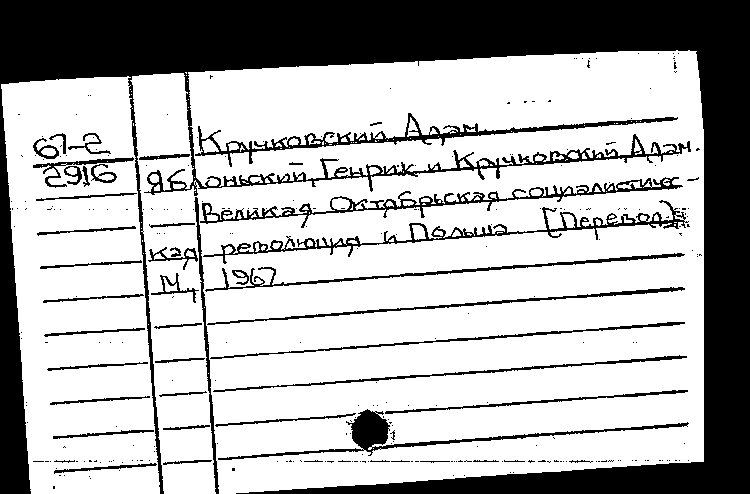 67-2 Кручковский, Адам.
2916 Яблоньский, Генрик и Кручковский, Адам.
Великая Октябрьская социалистичес-
кая революция и Польша [Перевод.]
М., 1967.